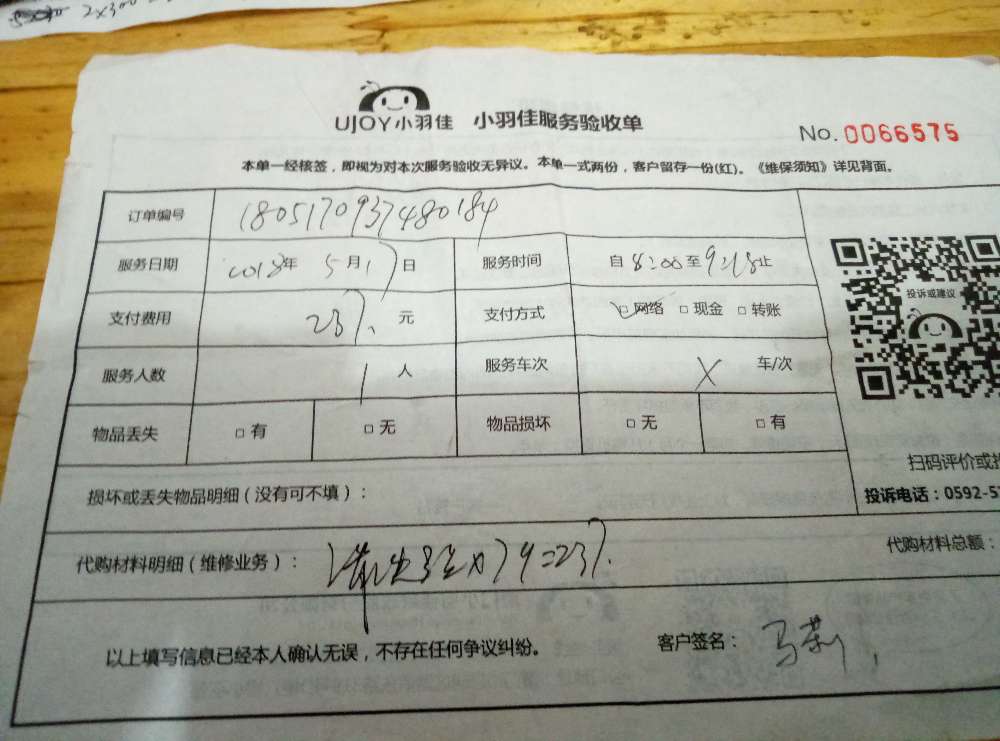 2×300
UJOY小羽佳 小羽佳服务验收单
No. 0066575
本单一经核签，即视为对本次服务验收无异议。本单一式两份，客户留存一份(红)。《维保须知》详见背面。
订单编号 1805170937480184
服务日期 2018年 5月17日 服务时间 自8:00至9:28止
支付费用 237. 元 支付方式 □网络 □现金 □转账
服务人数 1人 服务车次 X 车/次
物品丢失 □有 □无 物品损坏 □无 □有
投诉或建议
扫码评价或
投诉电话：0592-5
损坏或丢失物品明细（没有可不填）：
代购材料明细（维修业务）： =237.
代购材料总额：
以上填写信息已经本人确认无误，不存在任何争议纠纷。 客户签名：马莉